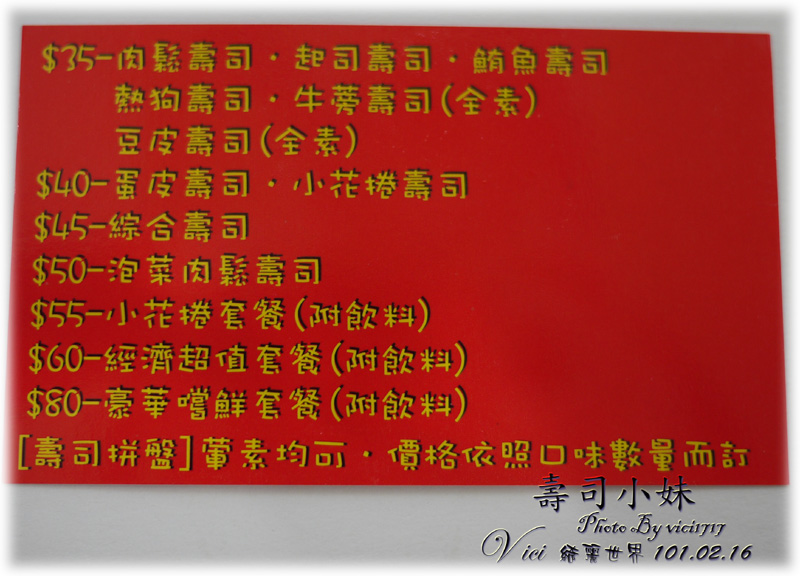 $35-肉鬆壽司·起司壽司·鮪魚壽司
熱狗壽司·牛蒡壽司(全素)
豆皮壽司(全素)
$40-蛋皮壽司·小花捲壽司
$45-綜合壽司
$50-泡菜肉鬆壽司
$55-小花捲套餐(附飲料)
$60-經濟超值套餐(附飲料)
$80-豪華嚐鮮套餐(附飲料)
[壽司拼盤]葷素均可·價格依照口味數量而訂
壽司小妹
Photo By vici1717
Vici 綺麗世界 101.02.16